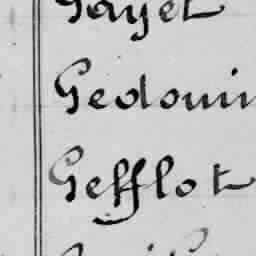 Gayet
Gedouin
Gefflot